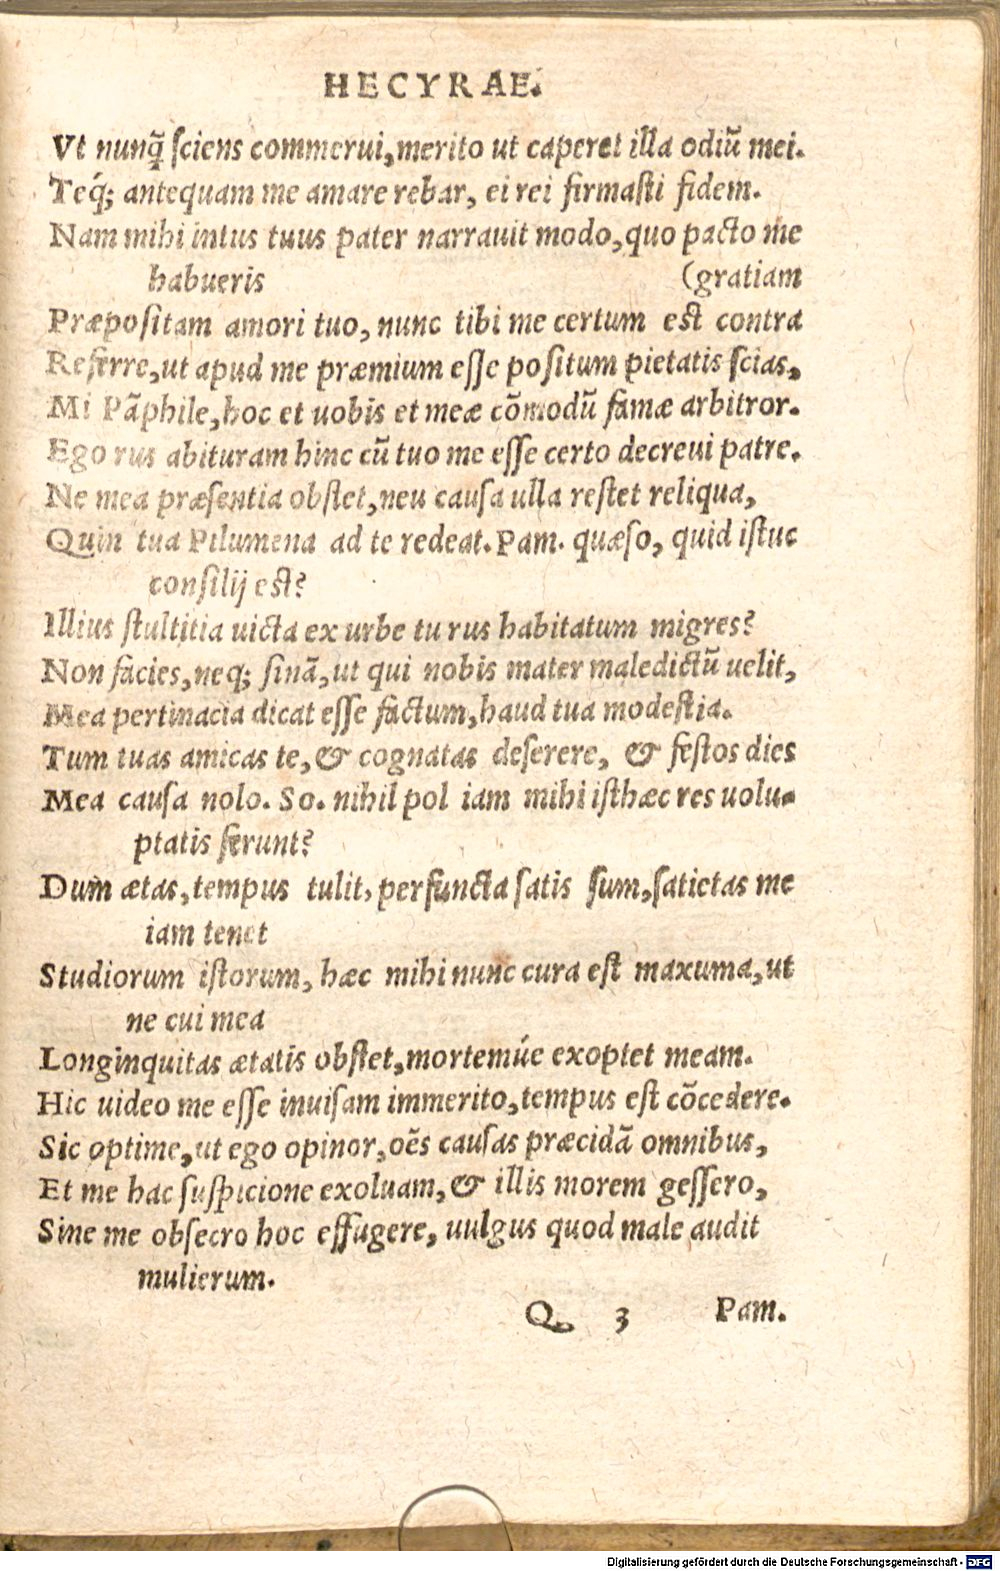 HECYRAE.
Vt nunq̃ sciens commerui, merito ut caperet illa odiũ mei.
Teq́; antequam me amare rebar, ei rei firmasti fidem.
Nam mihi intus tuus pater narrauit modo, quo pacto me
habueris (gratiam
Præpositam amori tuo, nunc tibi me certum est contra
Referre, ut apud me præmium esse positum pietatis scias,
Mi Pãphile, hoc et uobis et meæ cõmodũ famæ arbitror.
Ego rus abituram hinc cũ tuo me esse certo decreui patre.
Ne mea præsentia obstet, neu causa ulla restet reliqua,
Quin tua Pilumena ad te redeat. Pam. quæso, quid istuc
consilij est?
Illius stultitia uicta ex urbe tu rus habitatum migres?
Non facies, neq; sinã, ut qui nobis mater maledictũ uelit,
Mea pertinacia dicat esse factum, haud tua modestia.
Tum tuas amicas te, & cognatas deserere, & festos dies
Mea causa nolo. So. nihil pol iam mihi isthæc res uolu-
ptatis ferunt?
Dum ætas, tempus tulit, perfuncta satis sum, satietas me
iam tenet
Studiorum istorum, hæc mihi nunc cura est maxuma, ut
ne cui mea
Longinquitas ætatis obstet, mortemúe exoptet meam.
Hic uideo me esse inuisam immerito, tempus est cõcedere.
Sic optime, ut ego opinor, oẽs causas præcidã omnibus,
Et me hac suspicione exoluam, & illis morem gessero,
Sine me obsecro hoc effugere, uulgus quod male audit
mulierum.
Q 3 Pam.
Digitalisierung gefördert durch die Deutsche Forschungsgemeinschaft - DFG